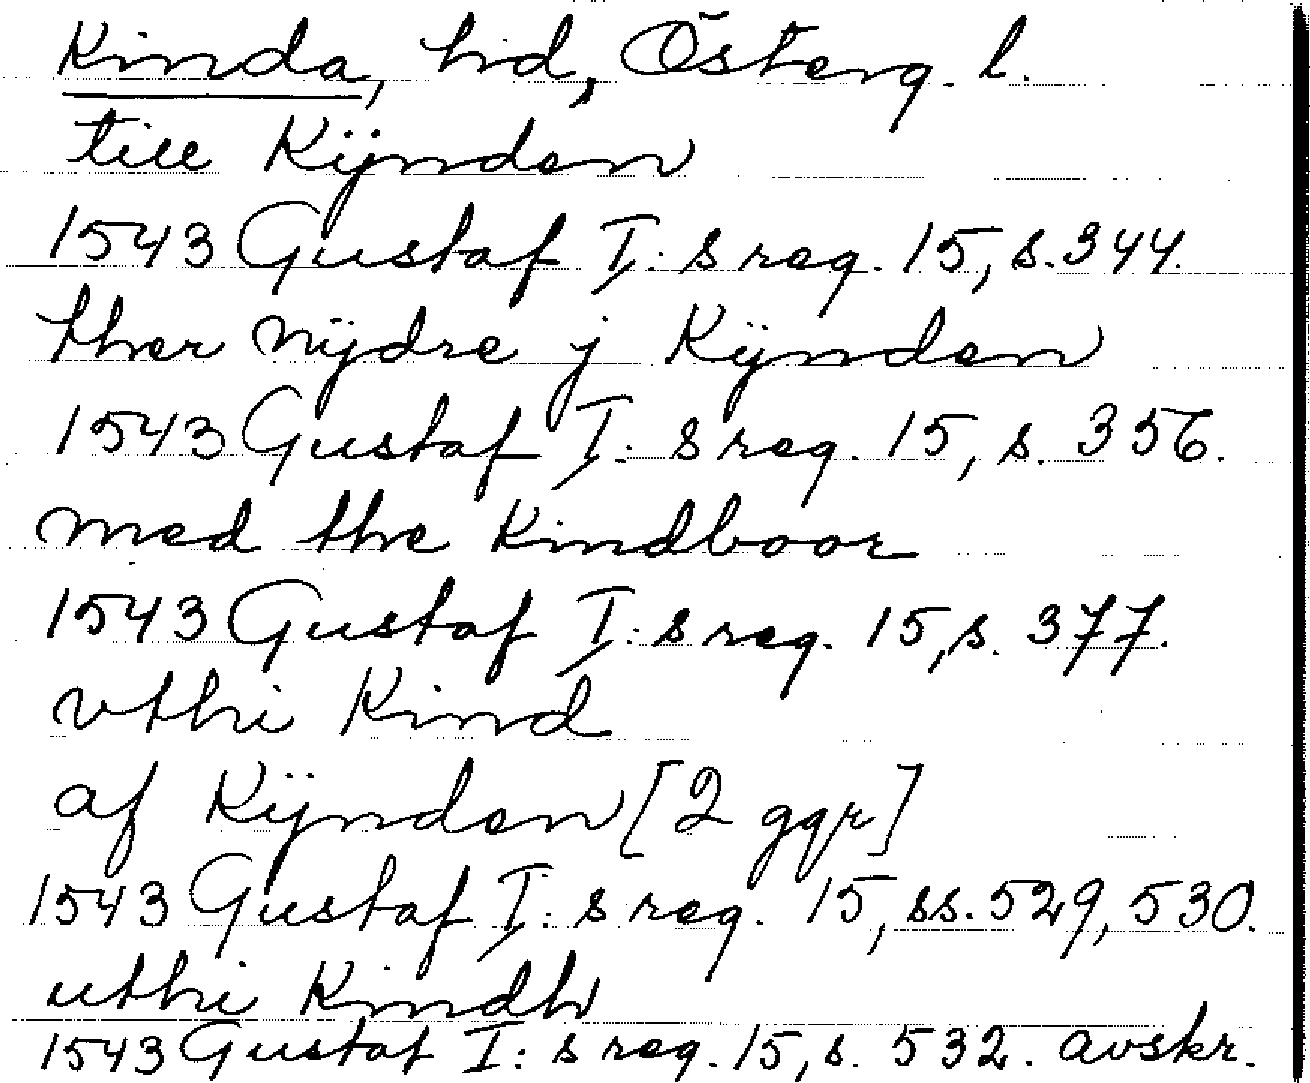 Kinda, hd, Österg. l.
till Kÿnden
1543 Gustaf I:s reg. 15, s. 344.
ther nÿdre j Kÿnden
1543 Gustaf I:s reg. 15, s. 356.
med the Kindboor
1543 Gustaf I:s reg. 15, s. 377.
vthi Kind
af Kÿnden [2 ggr]
1543 Gustaf I:s reg. 15, ss. 529, 530.
uthi Kindh
1543 Gustaf I:s reg. 15, s. 532. avskr.